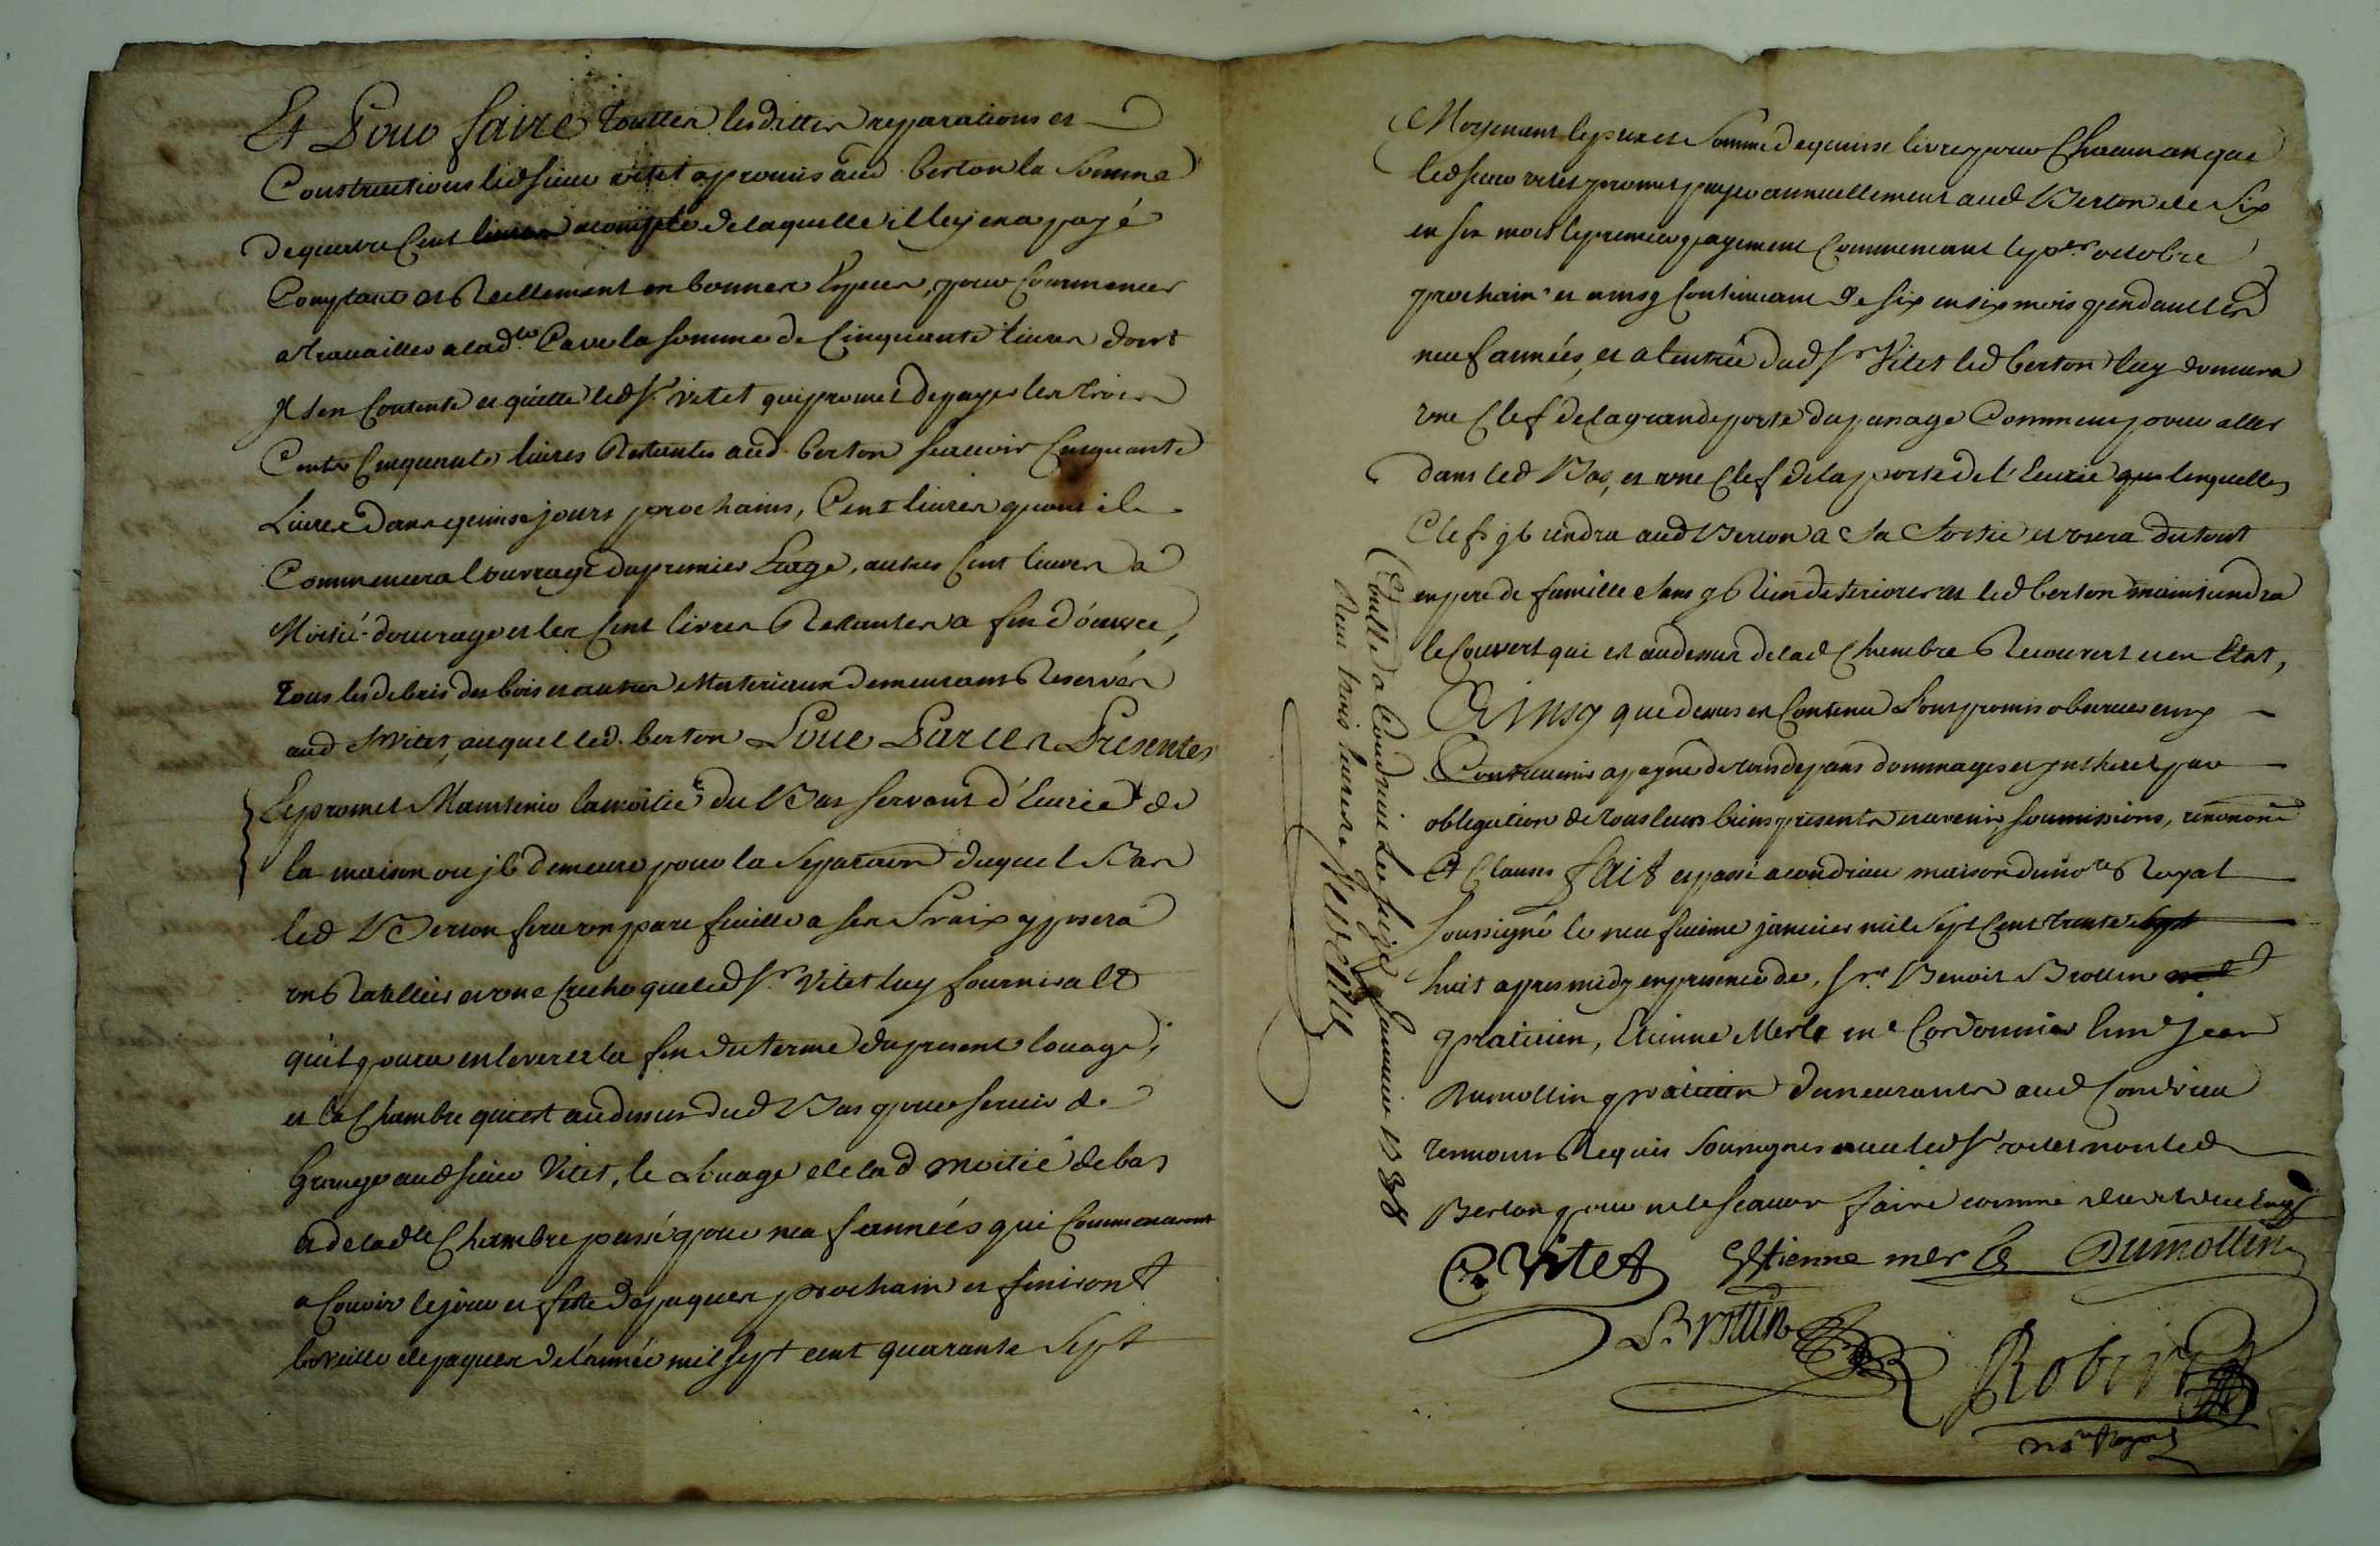 Et Pour faire touttes lesdittes reparations et
Constructions led sieur vitet a promis aud. berton la Somme
de quatre Cent livres acompte de laquelle il luy en a payé
Comptant et Reellement en bonnes Especes, pour Commencer
a travailler a lad.te Cave la somme de Cinquante livres dont
Il s'en Contente et quitte led Sr. vitet qui promet de payer les trois
Cents Cinquante livres Restantes aud. berton scavoir Cinquante
Livres dans quinse jours prochains, Cent livres quand il
Commencera l'ouvrage du premier Etage, autres Cent livres a
Moitié d'ouvrage et les Cent livres Restantes a fin d'oeuvre,
tous les debris des bois et autres Materiaux demeurans Reservés
aud Sr Vitet, auquel led. berton Loue Par ces Presentes
Et promet Maintenir la moitié du Bas servant d'Ecurie de
la maison ou jl demeure pour la Separaon duquel Bas
led Berton fera un pare feuille a ses Fraix y posera
un Ratellier et une Creche que led Sr. Vitet luy fournira et
qu'il poura enlever et la fin du terme du present louage,
et la Chambre qui est au dessus dud Bas pour servir de
Grange aud sieur Vitet, le Louage de lad moitié de bas
et de lad.te Chambre passé pour neuf années qui Commenceront
a Courir le jour et feste de paques prochain et finiront
la veille de paques de l'année mil sept cent quarante sept
Moyenant le prix et Somme de quinse livres pour Chacun an que
led sieur vitet promet payer annuellement aud Berton de Six
en six mois le premier payement Commencant le p.er octobre
prochain et ainsy Continuant de six en six mois pendant les d
neuf années, et a l'entrée dud Sr Vitet led berton luy donnera
une Clef de la grande porte du passage Commun pour aller
dans led Bas, et une Clef de la porte de l'Ecurie que lesquelles
Clefs jl rendra aud Berton a Sa Sortie et usera du tout
en pere de famille Sans y Rien deteriorer et led berton maintiendra
le Couvert qui est au dessus de lad Chambre Recouvert et en Etat,
Ainsy que dessus est Contenu Sont promis observer et n'y
Contrevenir a peyne de tous depans dommages et jntherets par
obligation de tous leurs biens presents et avenir, soumissions, renonons
Et Clauses Fait et passé a condrieu maison du no.re Royal
Soussigné le neufvieme janvier mil Sept Cent trente sept
huit apres midy en presence de, Sr. Benoit Brottin
praticien, Etienne Merle me Cordonnier et Jean
Dumottin praticien demeurants aud Condrieu
temoins Requis Soussignes avec led Sr vitet non led
Berton pour ne le scavoir faire comme
C. Vitet Estienne merle Dumottin
B. Brottin
Robert
no.re Royal
Contlle a Condrieu le seize Janvier 1738
Receu trois livres